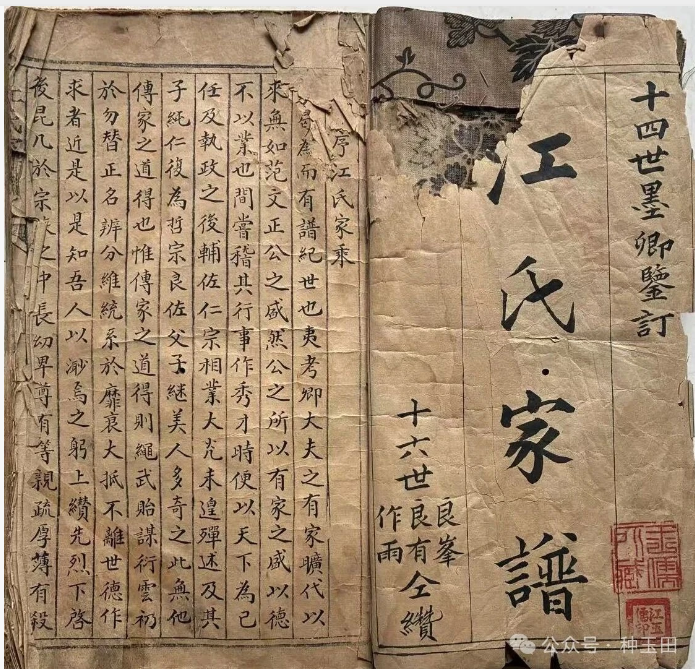 十四世墨卿鑒訂
江氏家譜
十六世良峯良有作雨仝纘
江玉儒印
序江氏家乘
為而有譜紀世也夷考卿大夫之有家曠代以
來無如范文正公之盛然公之所以有家之盛以德
不以業也間嘗稽其行事作秀才時便以天下為己
任及執政之後輔佐仁宗相業大光未遑殫述及其
子純仁復為哲宗良佐父子継美人多奇之此無他
傳家之道得也惟傳家之道得則繩武貽謀衍雲礽
於勿替正名辨分維統系於靡衰大抵不離世德作
求者近是以是知吾人以渺焉之躬上纘先烈下啓
後昆凡於宗族之中長幼畀尊有等親疏厚薄有殺
公众号·种玉田